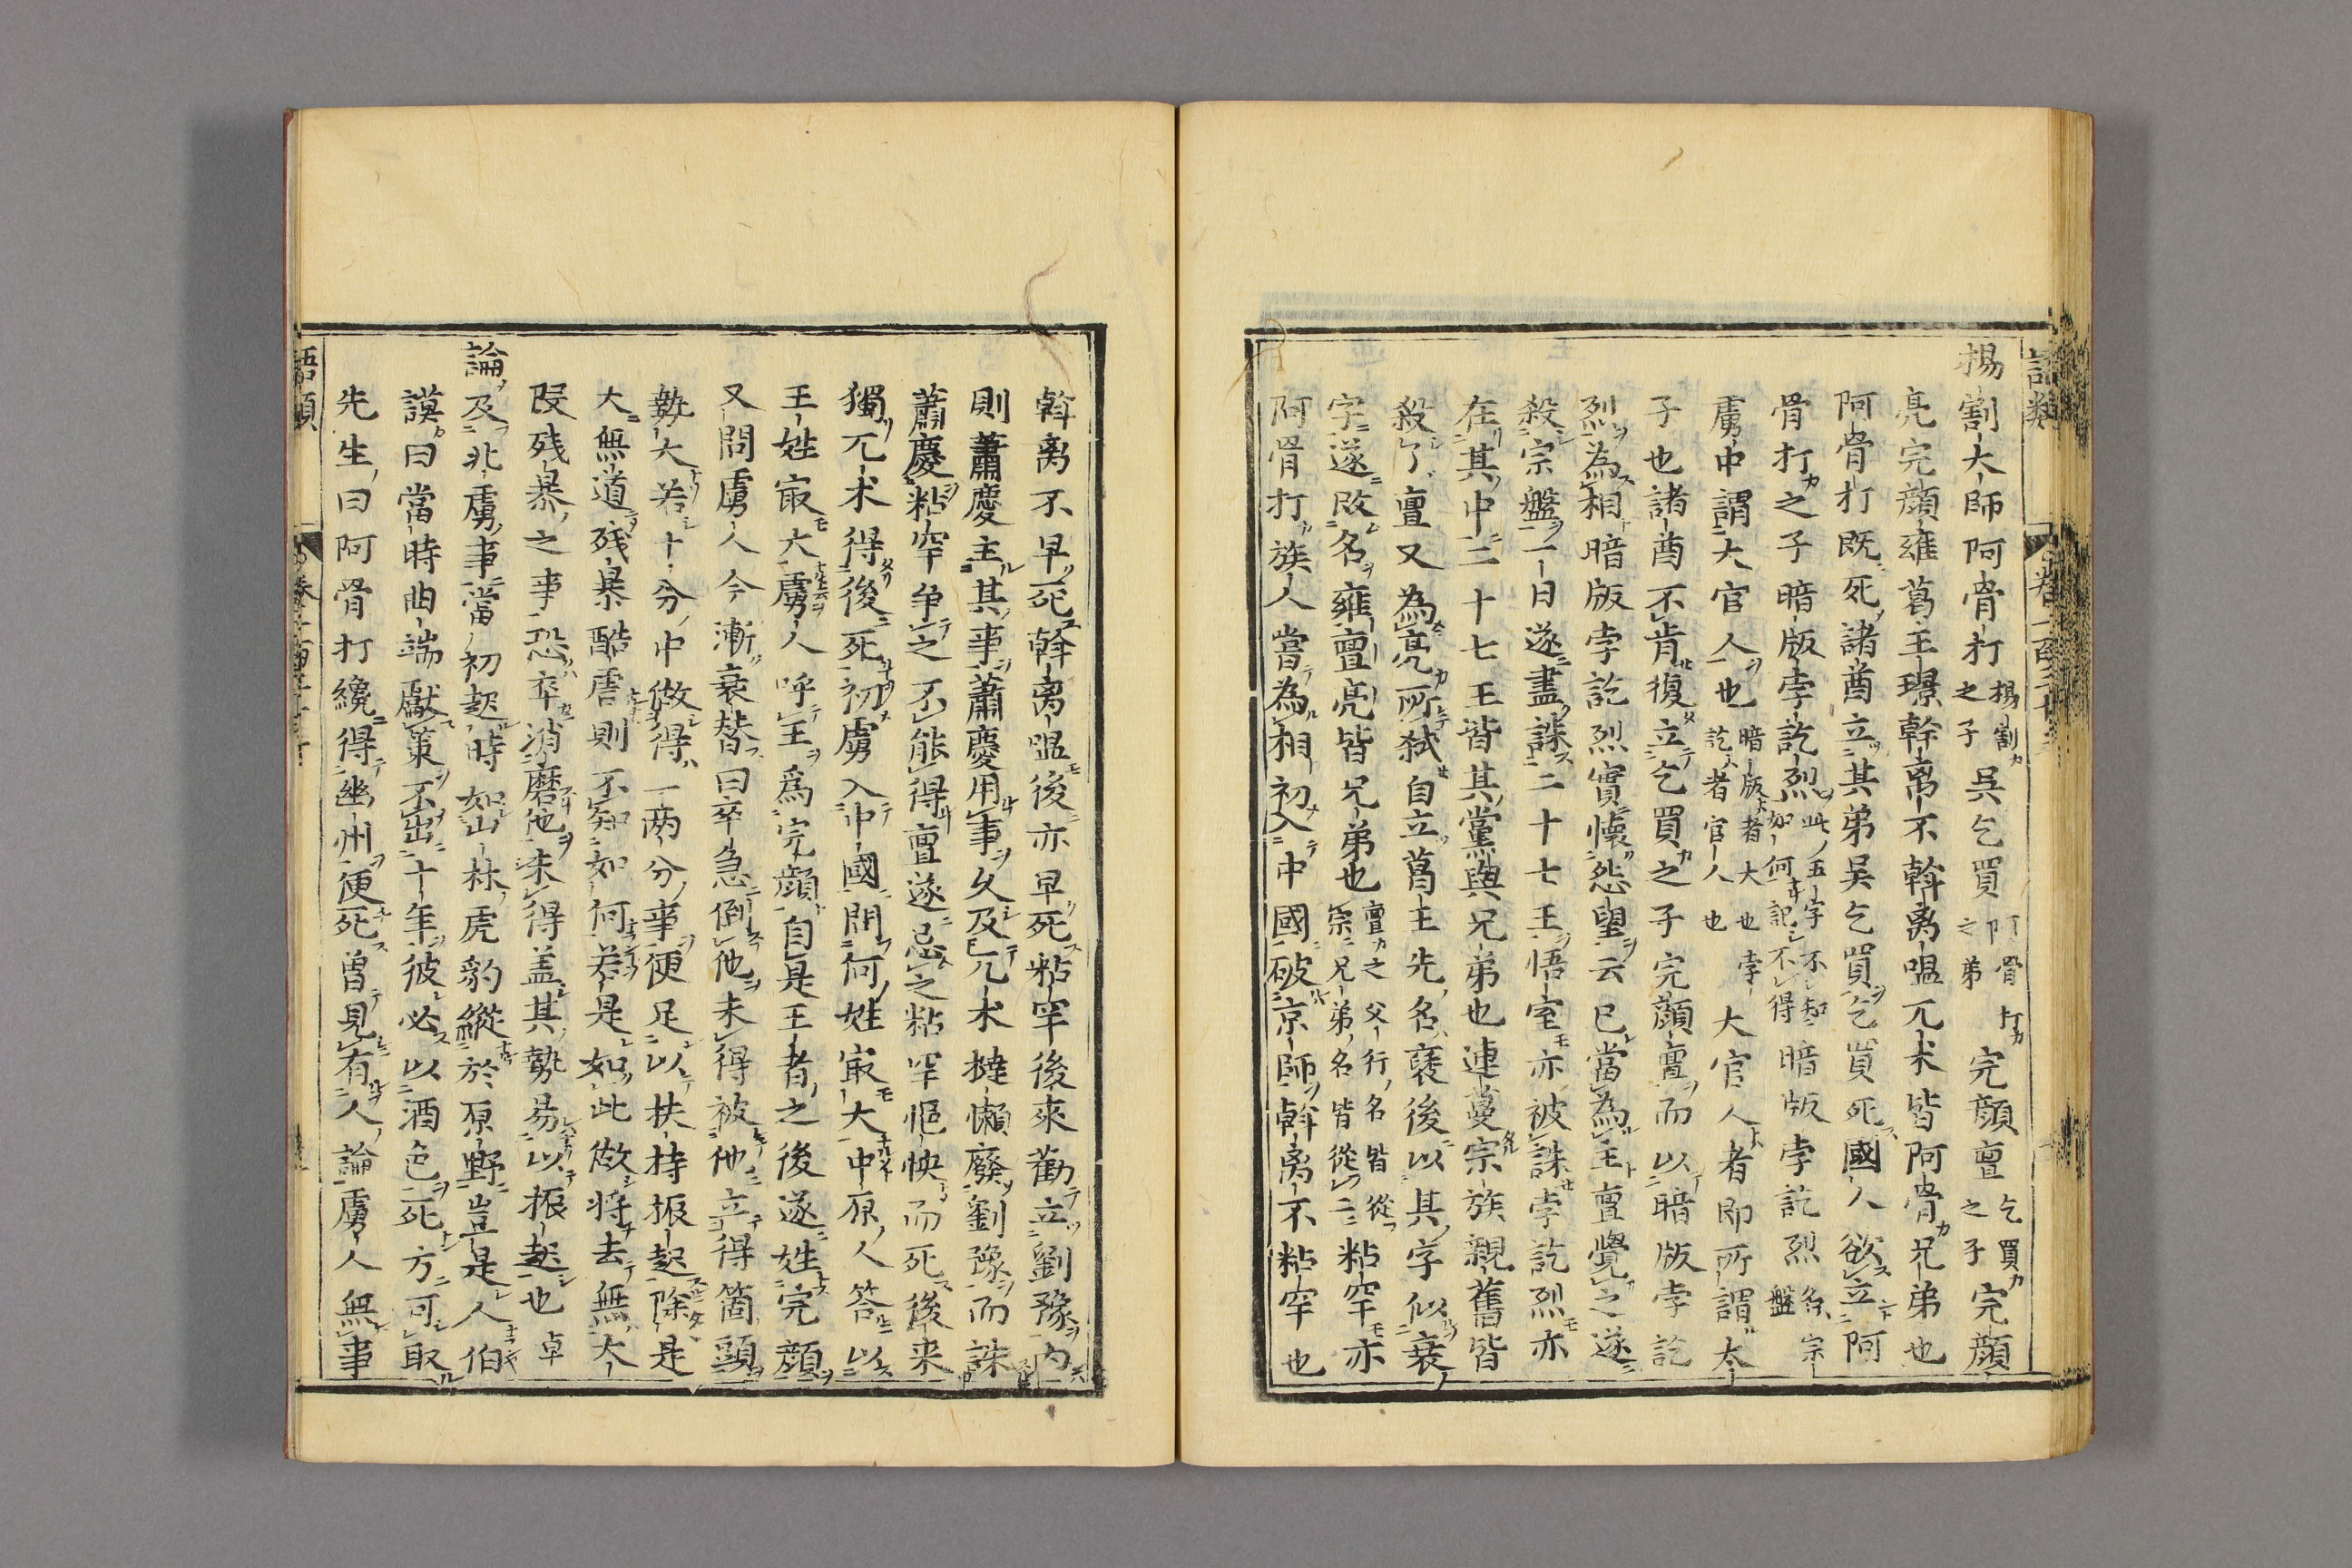 語類
卷一百三十三
揚割大師阿骨打揚割之子吳乞買阿骨打之弟完顏亶乞買之子完顏
亮完顏雍葛王璟斡离不斡离嗢兀朮皆阿骨兄弟也
阿骨打既死諸酋立其弟吳乞買乞買死國人欲立阿
骨打之子暗版孛訖烈此五字不知如何記不得暗版孛訖烈名宗盤
虜中謂大官人也暗版者大也孛訖者官人也大官人者即所謂太
子也諸酋不肯復立乞買之子完顏亶而以暗版孛訖
烈為相暗版孛訖烈實懷怨望云已當為王亶覺之遂
殺宗盤一日遂盡誅二十七王悟室亦被誅孛訖烈亦
在其中二十七王皆其黨與兄弟也連蔓宗族親舊皆
殺了亶又為亮所弒自立葛王先名褎後以其字似衰
字遂改名雍亶亮皆兄弟也亶之父行名皆從宗兄弟名皆從二粘罕亦
阿骨打族人嘗為相初入中國破京師斡离不粘罕也
斡离不早死斡离嗢後亦早死粘罕後來勸立劉豫內
則蕭慶主其事蕭慶用事久及兀朮撻懶廢劉豫而誅
蕭慶粘罕爭之不能得亶遂忌之粘罕悒怏而死後来
獨兀朮得後死初虜入中國問何姓冣大中原人答以
王姓冣大虜人呼王為完顏自是王者之後遂姓完顏
又問虜人今漸衰替曰卒急倒他未得被他立得箇頭
勢大若十分中做得一兩分事便足以扶持振起除是
大無道殘暴酷虐則不知如何若是如此做將去無大
段殘暴之事恐卒消磨他未得盖其勢易以振起也卓
論及北虜事當初起時如山林虎豹縱於原野豈是人伯
謨曰當時曲端獻策不出十年彼必以酒色死方可取
先生曰阿骨打纔得幽州便死曾見有人論虜人無事
語類
卷一百三十三